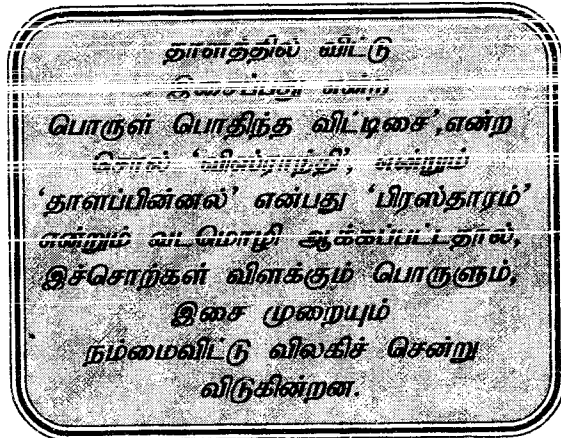 தாளத்தில் விட்டு
இசைப்பது என்ற
பொருள் பொதிந்த விட்டிசை',என்ற
சொல் 'விஸ்ராந்தி', என்றும்
'தாளப்பின்னல்' என்பது 'பிரஸ்தாரம்'
என்றும் வடமொழி ஆக்கப்பட்டதால்,
இச்சொற்கள் விளக்கும் பொருளும்,
இசை முறையும்
நம்மைவிட்டு விலகிச் சென்று
விடுகின்றன.